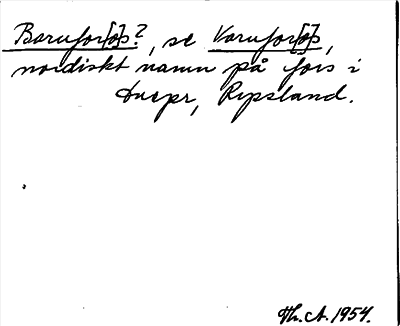 Baruforos?, se Varuforos,
nordiskt namn på fors i
Dnepr, Ryssland.
Th. A. 1954.